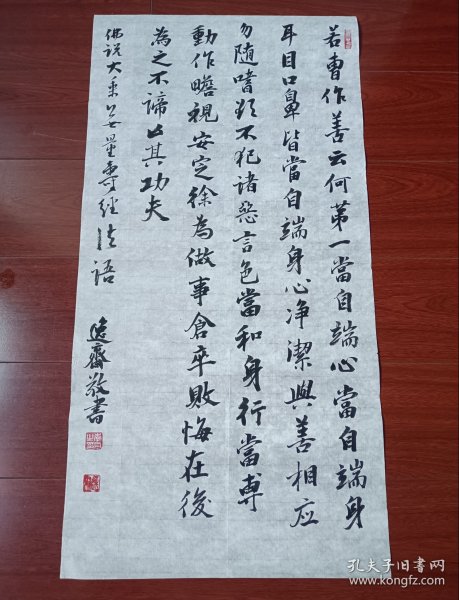 若曹作善云何第一當自端心當自端身
耳目口鼻皆當自端身心净潔與善相应
勿随嗜欲不犯诸惡言色當和身行當専
動作瞻視安定徐為做事倉卒敗悔在後
為之不諦亡其功夫
佛说大乘无量寿经法语
逸齋敬書
孔夫子旧书网
www.kongfz.com